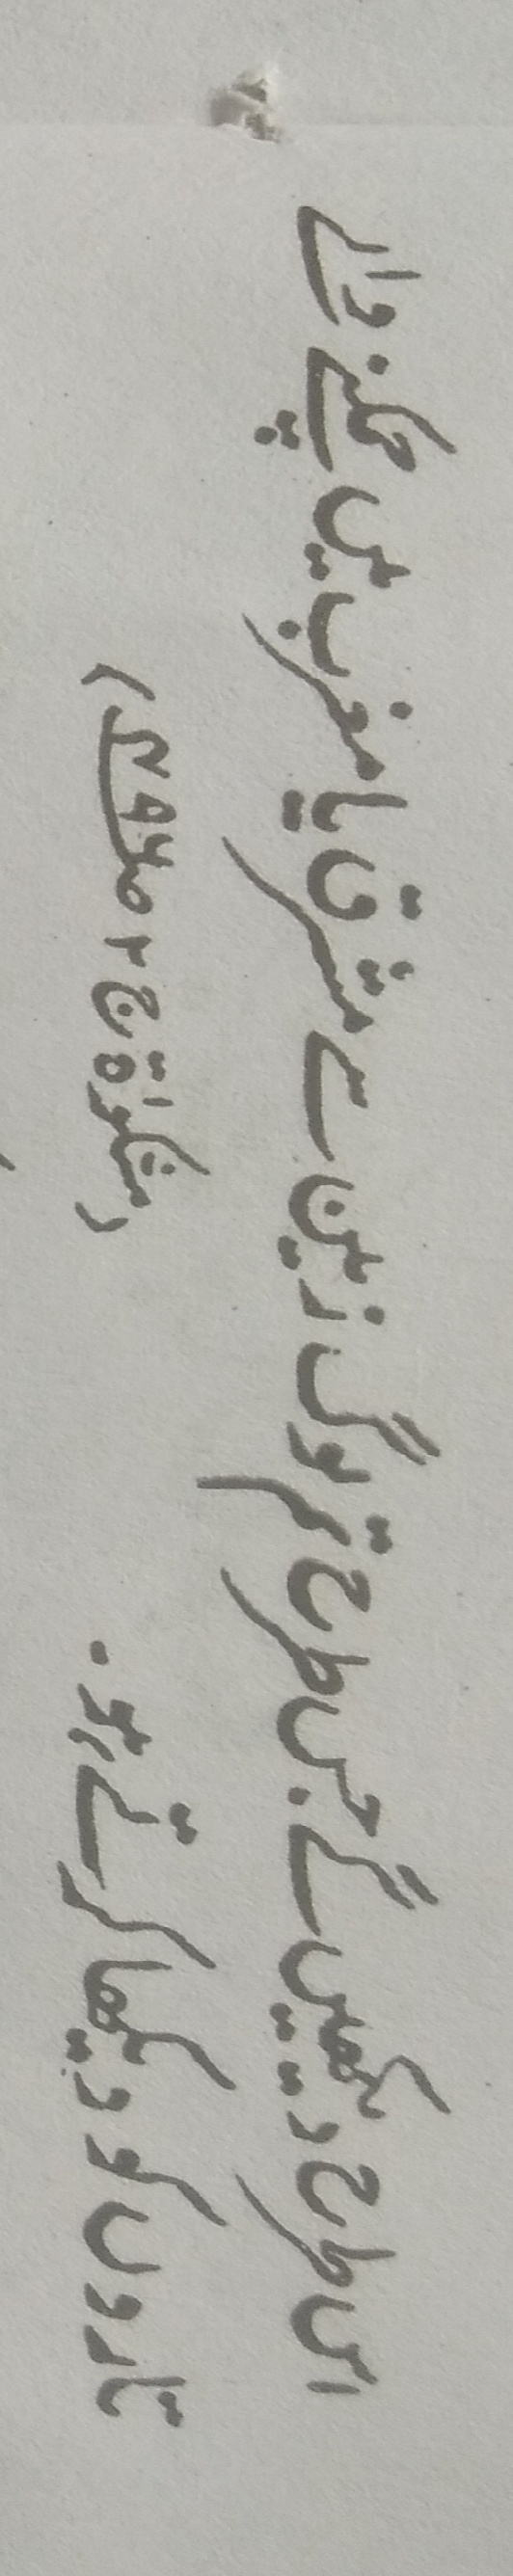 اس طرح دیکھیں گے جس طرح تم لوگ زمین سے مشرق یا مغرب میں چمکنے والے
تاروں کو دیکھا کرتے ہو۔ (مشکوٰۃ ج ۲ ص۴۹۶)